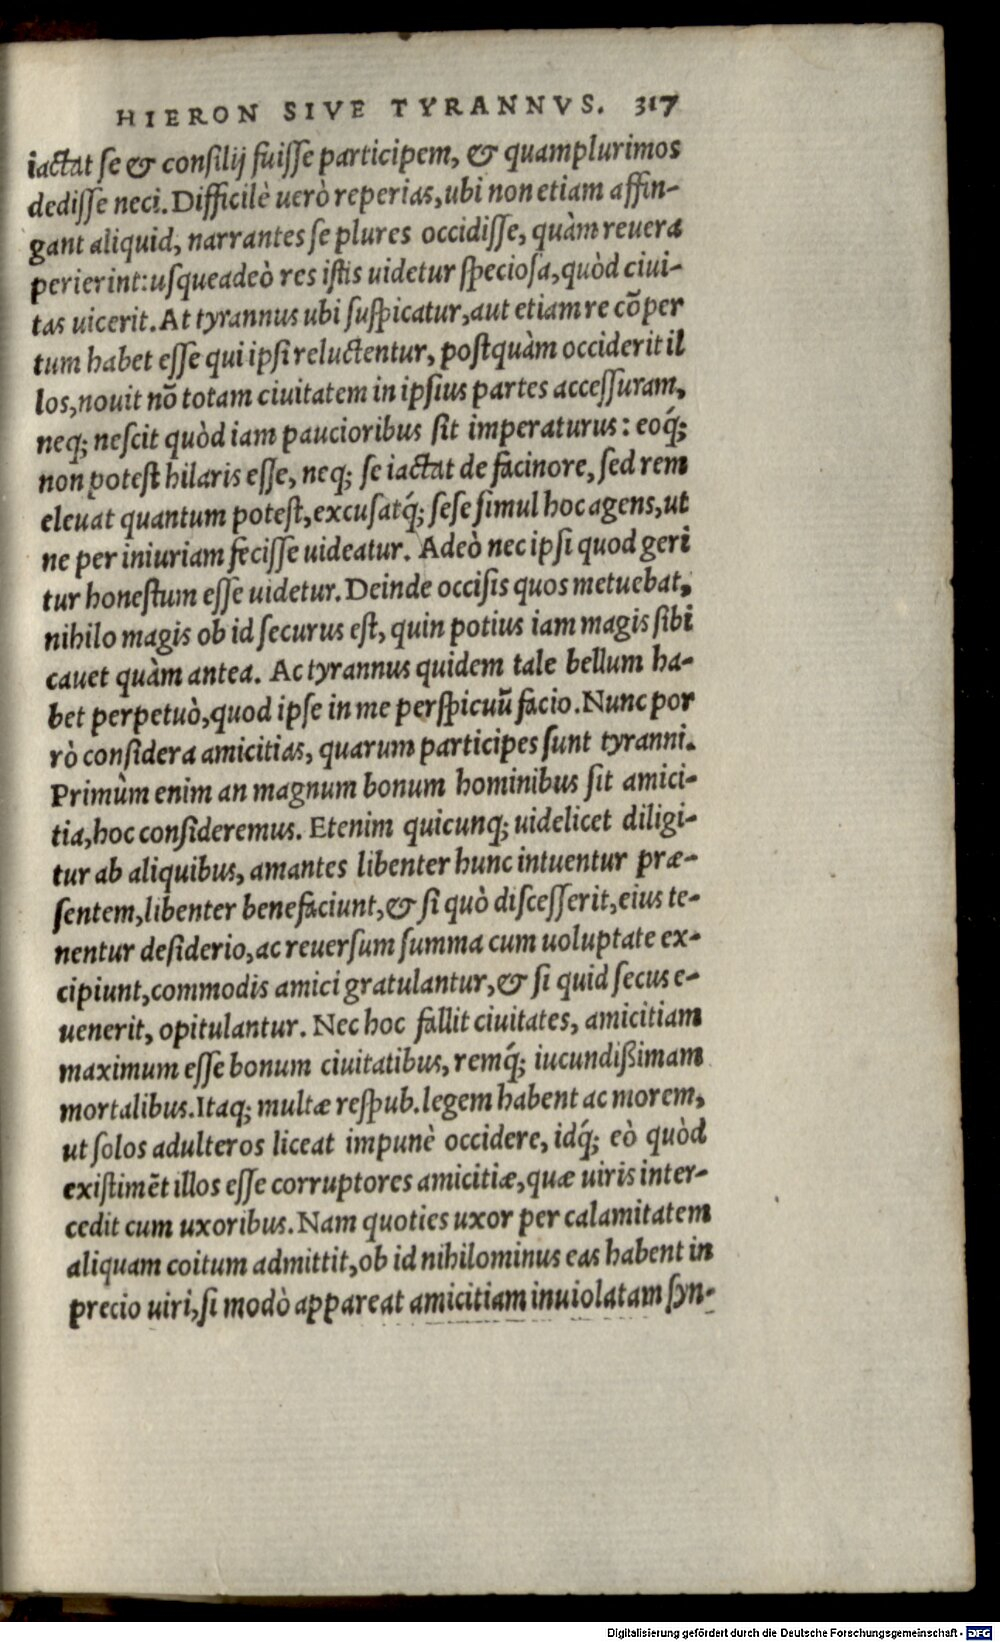 HIERON SIVE TYRANNVS. 317
iactat se & consilij fuisse participem, & quamplurimos
dedisse neci. Difficilè uerò reperias, ubi non etiam affin-
gant aliquid, narrantes se plures occidisse, quàm reuera
perierint: usqueadeò res istis uidetur speciosa, quòd ciui-
tas uicerit. At tyrannus ubi suspicatur, aut etiam re cõper
tum habet esse qui ipsi reluctentur, postquàm occiderit il
los, nouit nõ totam ciuitatem in ipsius partes accessuram,
neq; nescit quòd iam paucioribus sit imperaturus: eoq́;
non potest hilaris esse, neq; se iactat de facinore, sed rem
eleuat quantum potest, excusatq́; sese simul hoc agens, ut
ne per iniuriam fecisse uideatur. Adeò nec ipsi quod geri
tur honestum esse uidetur. Deinde occisis quos metuebat,
nihilo magis ob id securus est, quin potius iam magis sibi
cauet quàm antea. Ac tyrannus quidem tale bellum ha-
bet perpetuò, quod ipse in me perspicuũ facio. Nunc por
rò considera amicitias, quarum participes sunt tyranni.
Primùm enim an magnum bonum hominibus sit amici-
tia, hoc consideremus. Etenim quicunq; uidelicet diligi-
tur ab aliquibus, amantes libenter hunc intuentur præ-
sentem, libenter benefaciunt, & si quò discesserit, eius te-
nentur desiderio, ac reuersum summa cum uoluptate ex-
cipiunt, commodis amici gratulantur, & si quid secus e-
uenerit, opitulantur. Nec hoc fallit ciuitates, amicitiam
maximum esse bonum ciuitatibus, remq́; iucundißimam
mortalibus. Itaq; multæ respub. legem habent ac morem,
ut solos adulteros liceat impunè occidere, idq́; eò quòd
existimẽt illos esse corruptores amicitiæ, quæ uiris inter-
cedit cum uxoribus. Nam quoties uxor per calamitatem
aliquam coitum admittit, ob id nihilominus eas habent in
precio uiri, si modò appareat amicitiam inuiolatam syn-
Digitalisierung gefördert durch die Deutsche Forschungsgemeinschaft - DFG